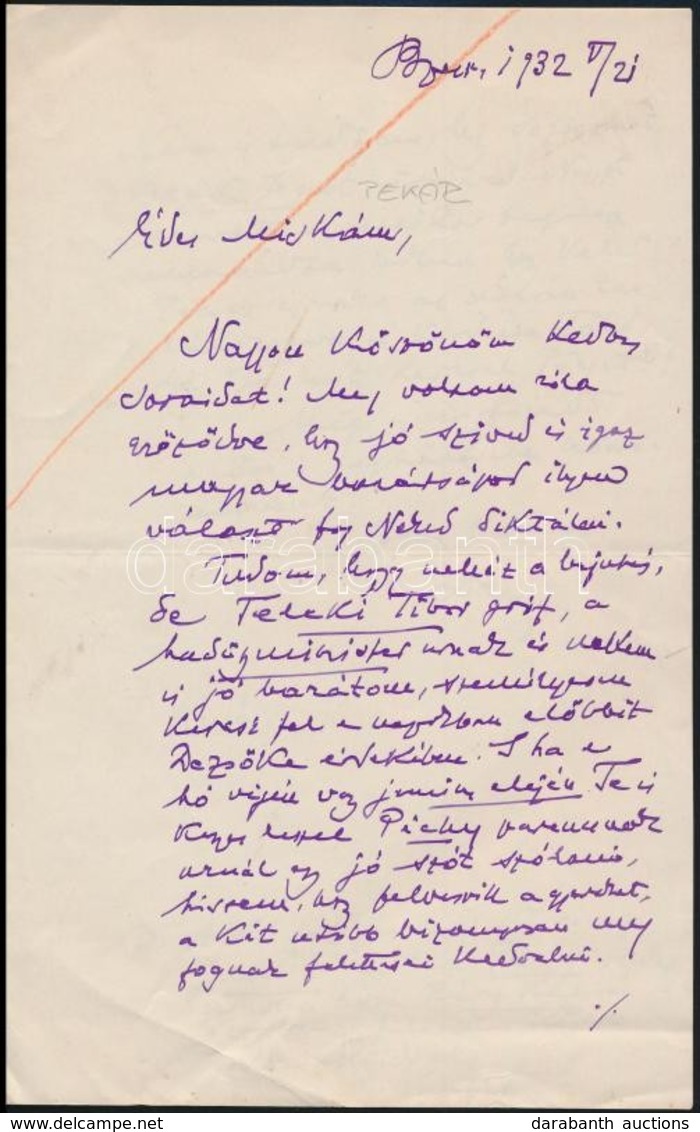 1932 V/21
PEKÁR
Édes Miskám,
Nagyon köszönöm kedves
soraidat! Meg voltam róla
győződve, hogy jó szived és igaz
magyar barátságod ilyen
választ fog Néked diktálni.
Tudom, hogy nehéz a bejutás,
de Teleki Tibor gróf, a
hadügyminister urnak és nekem
is jó barátom, személyesen
keresi fel e napokban előbbit
Dezsőke érdekében. S ha e
hó végén vagy junius elején Te is
kegyes leszel Pichy
urnál egy jó szót szólani,
hiszem, hogy felveszik a gyereket,
a két utóbb bizonyosan meg
fognak felettesei kedvelni.
./.
darabanth
www.delcampe.net
darabanth auctions